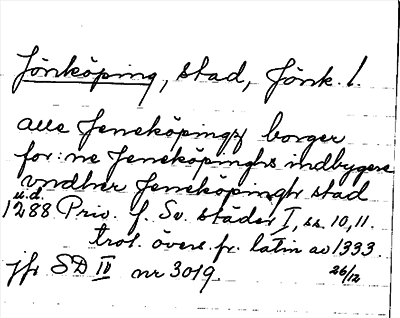 Jönköping, stad, Jönk. l.
alle Jeneköpings borger
for:ne Jeneköpinghs indbygere
vndher Jeneköpinghr stad
u.d.
1288 Priv. f. Sv. städer I, ss. 10, 11.
trol. övers. fr. latin av 1333.
jfr SD IV nr 3019.
26/12